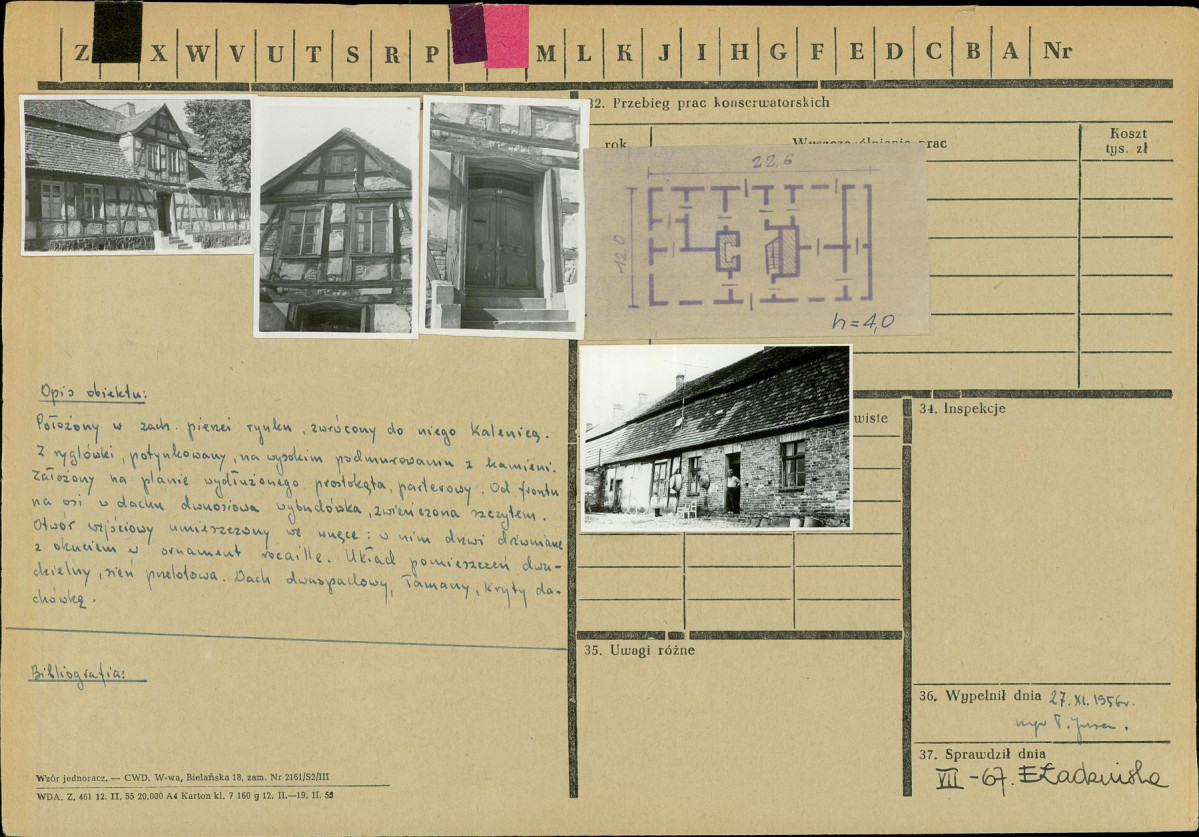 Z X W V U T S R P M L K J I H G F E D C B A Nr
32. Przebieg prac konserwatorskich
rok
Wyszczególnienie prac
Koszt
tys. zł
22,6
12.0
h=4,0
Opis obiektu:
Położony w zach. pierzei rynku, zwrócony do niego kalenicą.
Z ryglówki, potynkowany, na wysokim podmurowaniu z kamieni.
Założony na planie wydłużonego prostokąta, parterowy. Od frontu
na osi w dachu dwuosiowa wybudówka, zwieńczona szczytem.
Otwór wejściowy umieszczony we wnęce: w nim drzwi drewniane
z okuciem w ornament rocaille. Układ pomieszczeń dwu-
dzielny, sień przelotowa. Dach dwuspadowy, łamany, kryty da-
chówką.
Bibliografia:
wiste
34. Inspekcje
35. Uwagi różne
36. Wypełnił dnia 27.XI.1956r.
mgr T.
37. Sprawdził dnia
VII -67. EŁadzińska
Wzór jednoracz. — CWD. W-wa, Bielańska 18, zam. Nr 2161/S2/III
WDA. Z. 461 12. II. 55 20.000 A4 Karton kl. 7 160 g 12. II.—19. II. 55